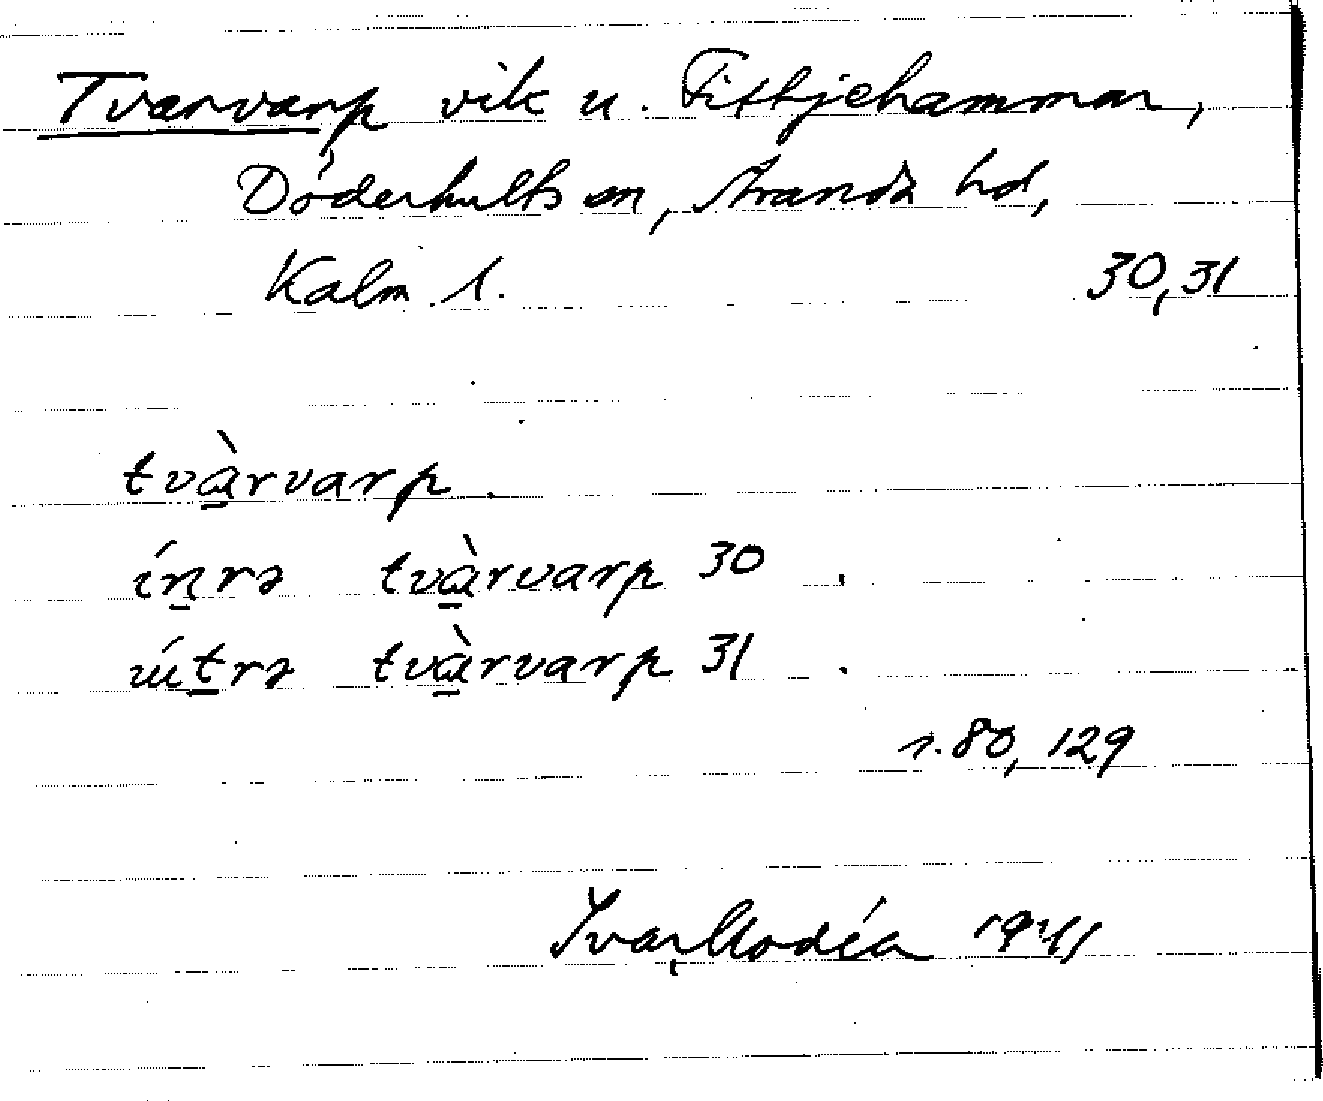 Tvärvarp vik u. Fittjehammar,
Döderhults sn, Stranda hd,
Kalm. l. 30, 31
tvà̱rvarp
íṉrə tvà̱rvarp 30
úṯrə tvà̱rvarp 31
s. 80, 129
Ivar Modéer 1941